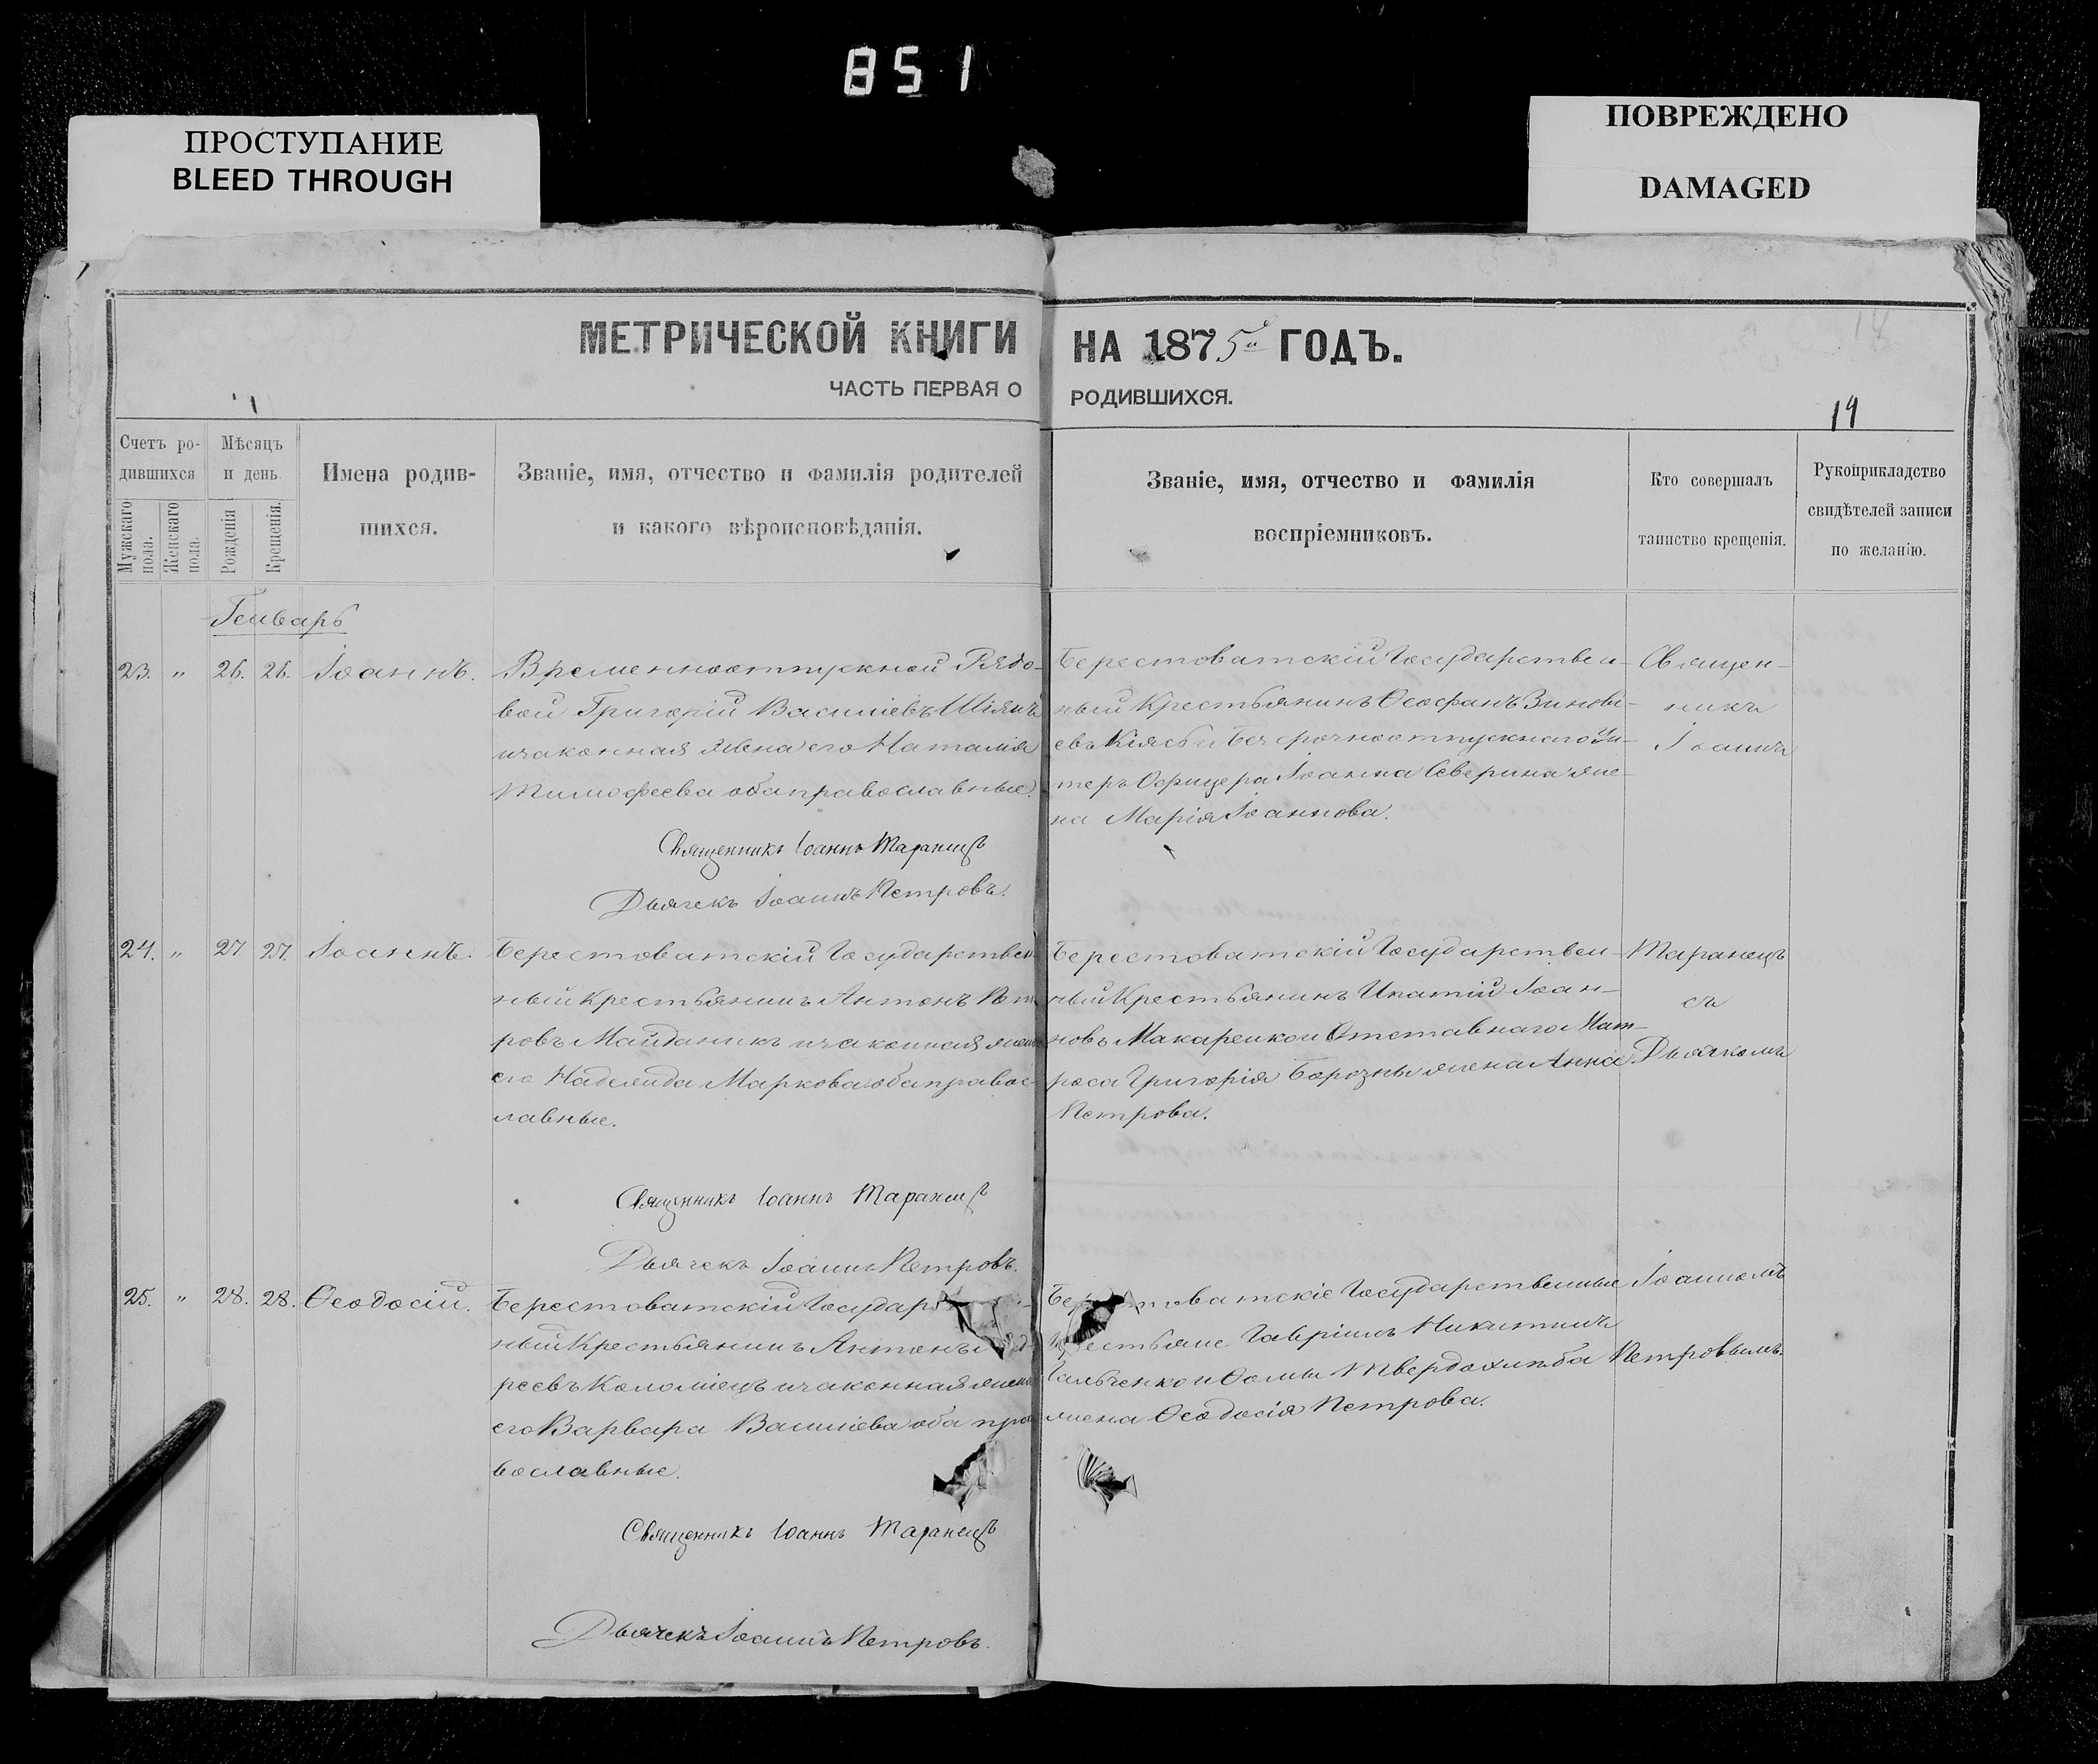 851
ПРОСТУПАНИЕ
BLEED THROUGH
ПОВРЕЖДЕНО
DAMAGED
МЕТРИЧЕСКОЙ КНИГИ НА 1875й ГОДЪ.
ЧАСТЬ ПЕРВАЯ О РОДИВШИХСЯ.
19
Счетъ ро-
дившихся
Мужскаго пола.
Женскаго пола.
Мѣсяцъ
и день
Рожденія
Крещенія.
Имена родив-
шихся.
Званіе, имя, отчество и фамилія родителей
и какого вѣроисповѣданія.
Званіе, имя, отчество и фамилія
воспріемниковъ.
Кто совершалъ
таинство крещенія.
Рукоприкладство
свидѣтелей записи
по желанію.
Генварь
23. " 26. 26. Іоаннъ.
Временноотпускной Рядо-
вой Григорій Василіевъ Шіянъ
и законная жена его Наталія
Тимофеева оба православные.
Священникъ Іоаннъ Таранецъ
Дьячекъ Іоаннъ Петровъ.
Берестоватскій Государствен-
ный Крестьянинъ Ѳеофанъ Зинові-
евъ и Безсрочноотпускнаго Ун-
теръ Офицера Іоанна Северина же-
на Марія Іоаннова.
Священ-
никъ
Іоаннъ
24. " 27 27. Іоаннъ.
Берестоватскій Государствен
ный Крестьянинъ Антонъ Пет
ровъ Майданикъ и законная жена
его Надежда Маркова оба правос-
лавные.
Священникъ Іоаннъ Таранецъ
Дьячекъ Іоаннъ Петровъ.
Берестоватскій Государствен-
ный Крестьянинъ Ипатій Іоан-
новъ Макаренко и Отставнаго Мат-
роса Григорія Борозны жена Анна
Петрова.
Таранецъ
съ
Дьячкомъ
25. " 28. 28. Ѳеодосій.
Берестоватскій Государ
ный Крестьянинъ Антонъ
реевъ Коломіецъ и законная жена
его Варвара Василіева оба пра
вославные.
Священникъ Іоаннъ Таранецъ
Дьячекъ Іоаннъ Петровъ.
Бер товатскіе Государственные
Крестьяне Гавріилъ Никитинъ
Гальченко и Ѳомы Твердохлѣба
жена Ѳеодосія Петрова.
Іоанномъ
Петровымъ.